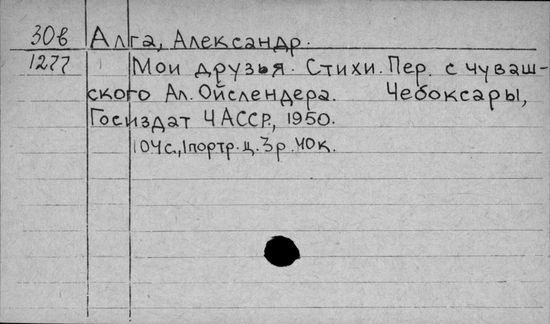 30в Алга, Александр.
1277 Мои друзья. Стихи. Пер. с чуваш-
ского Ал. Ойслендера. Чебоксары,
Госиздат ЧАССР, 1950.
104с., 1портр. ц. 3р. 40к.